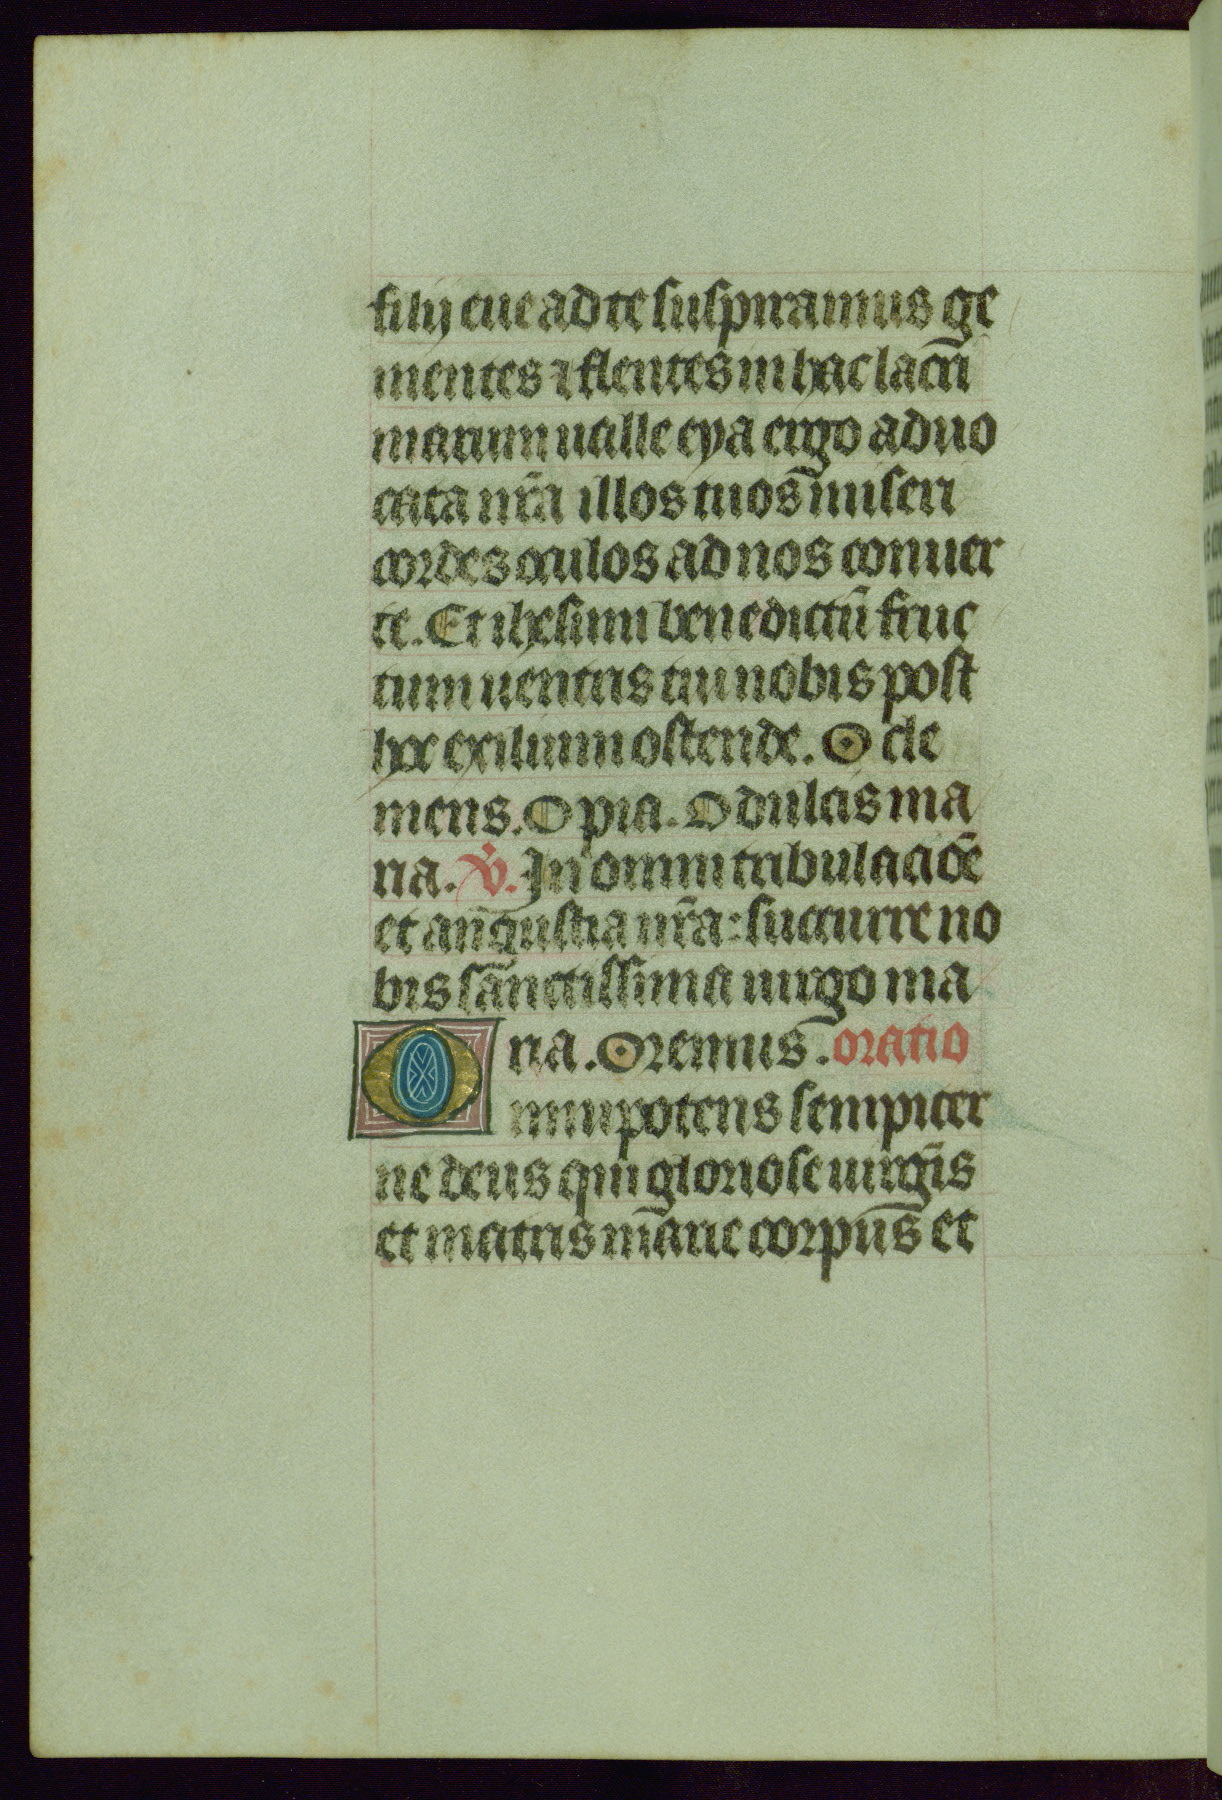 filij eue ad te suspiramus ge
mentes ⁊ flentes in hac lacri
marum ualle eya ergo aduo
cata nr̄a illos tuos miseri
cordes oculos ad nos conuer
te. Et ihesum benedictū fruc
tum uentris tui nobis post
hoc exilium ostende. O cle
mens. O pia. O dulcis ma
ria. V̇. In omni tribulacioē
et angustia nr̄a: succurre no
bis sanctissima uirgo ma
ria. Oremus. oratio
Omnipotens sempiter
ne deus qui gloriose uirgīs
et matris marie corpus et